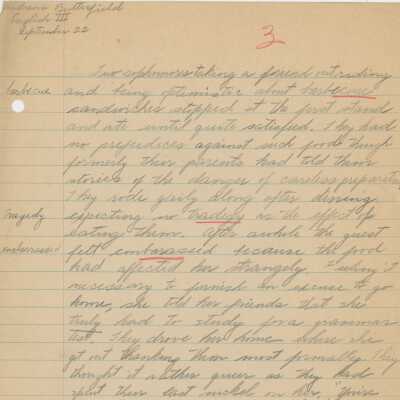 Butterfield
English III
September 22
3
Two sophmores taking a friend out riding
barbecue and being optimistic about barbecue
sandwiches stopped at the first stand
and ate until quite satisfied. They had
no prejudices against such foods though
formerly their parents had told them
stories of the danger of careless preparation
They rode gaily along after dining
tragedy expecting no tradedy in the effect of
eating them. After awhile the guest
embarrassed felt embarassed because the food
had affected her strangely. Feeling it
necessary to furnish an excuse to go
home, she told her friends that she
truly had to study for a grammar
test. They drove her home where she
got out thanking them most formally. They
thought it rather queer as they had
spent their last nickel on her, "You're